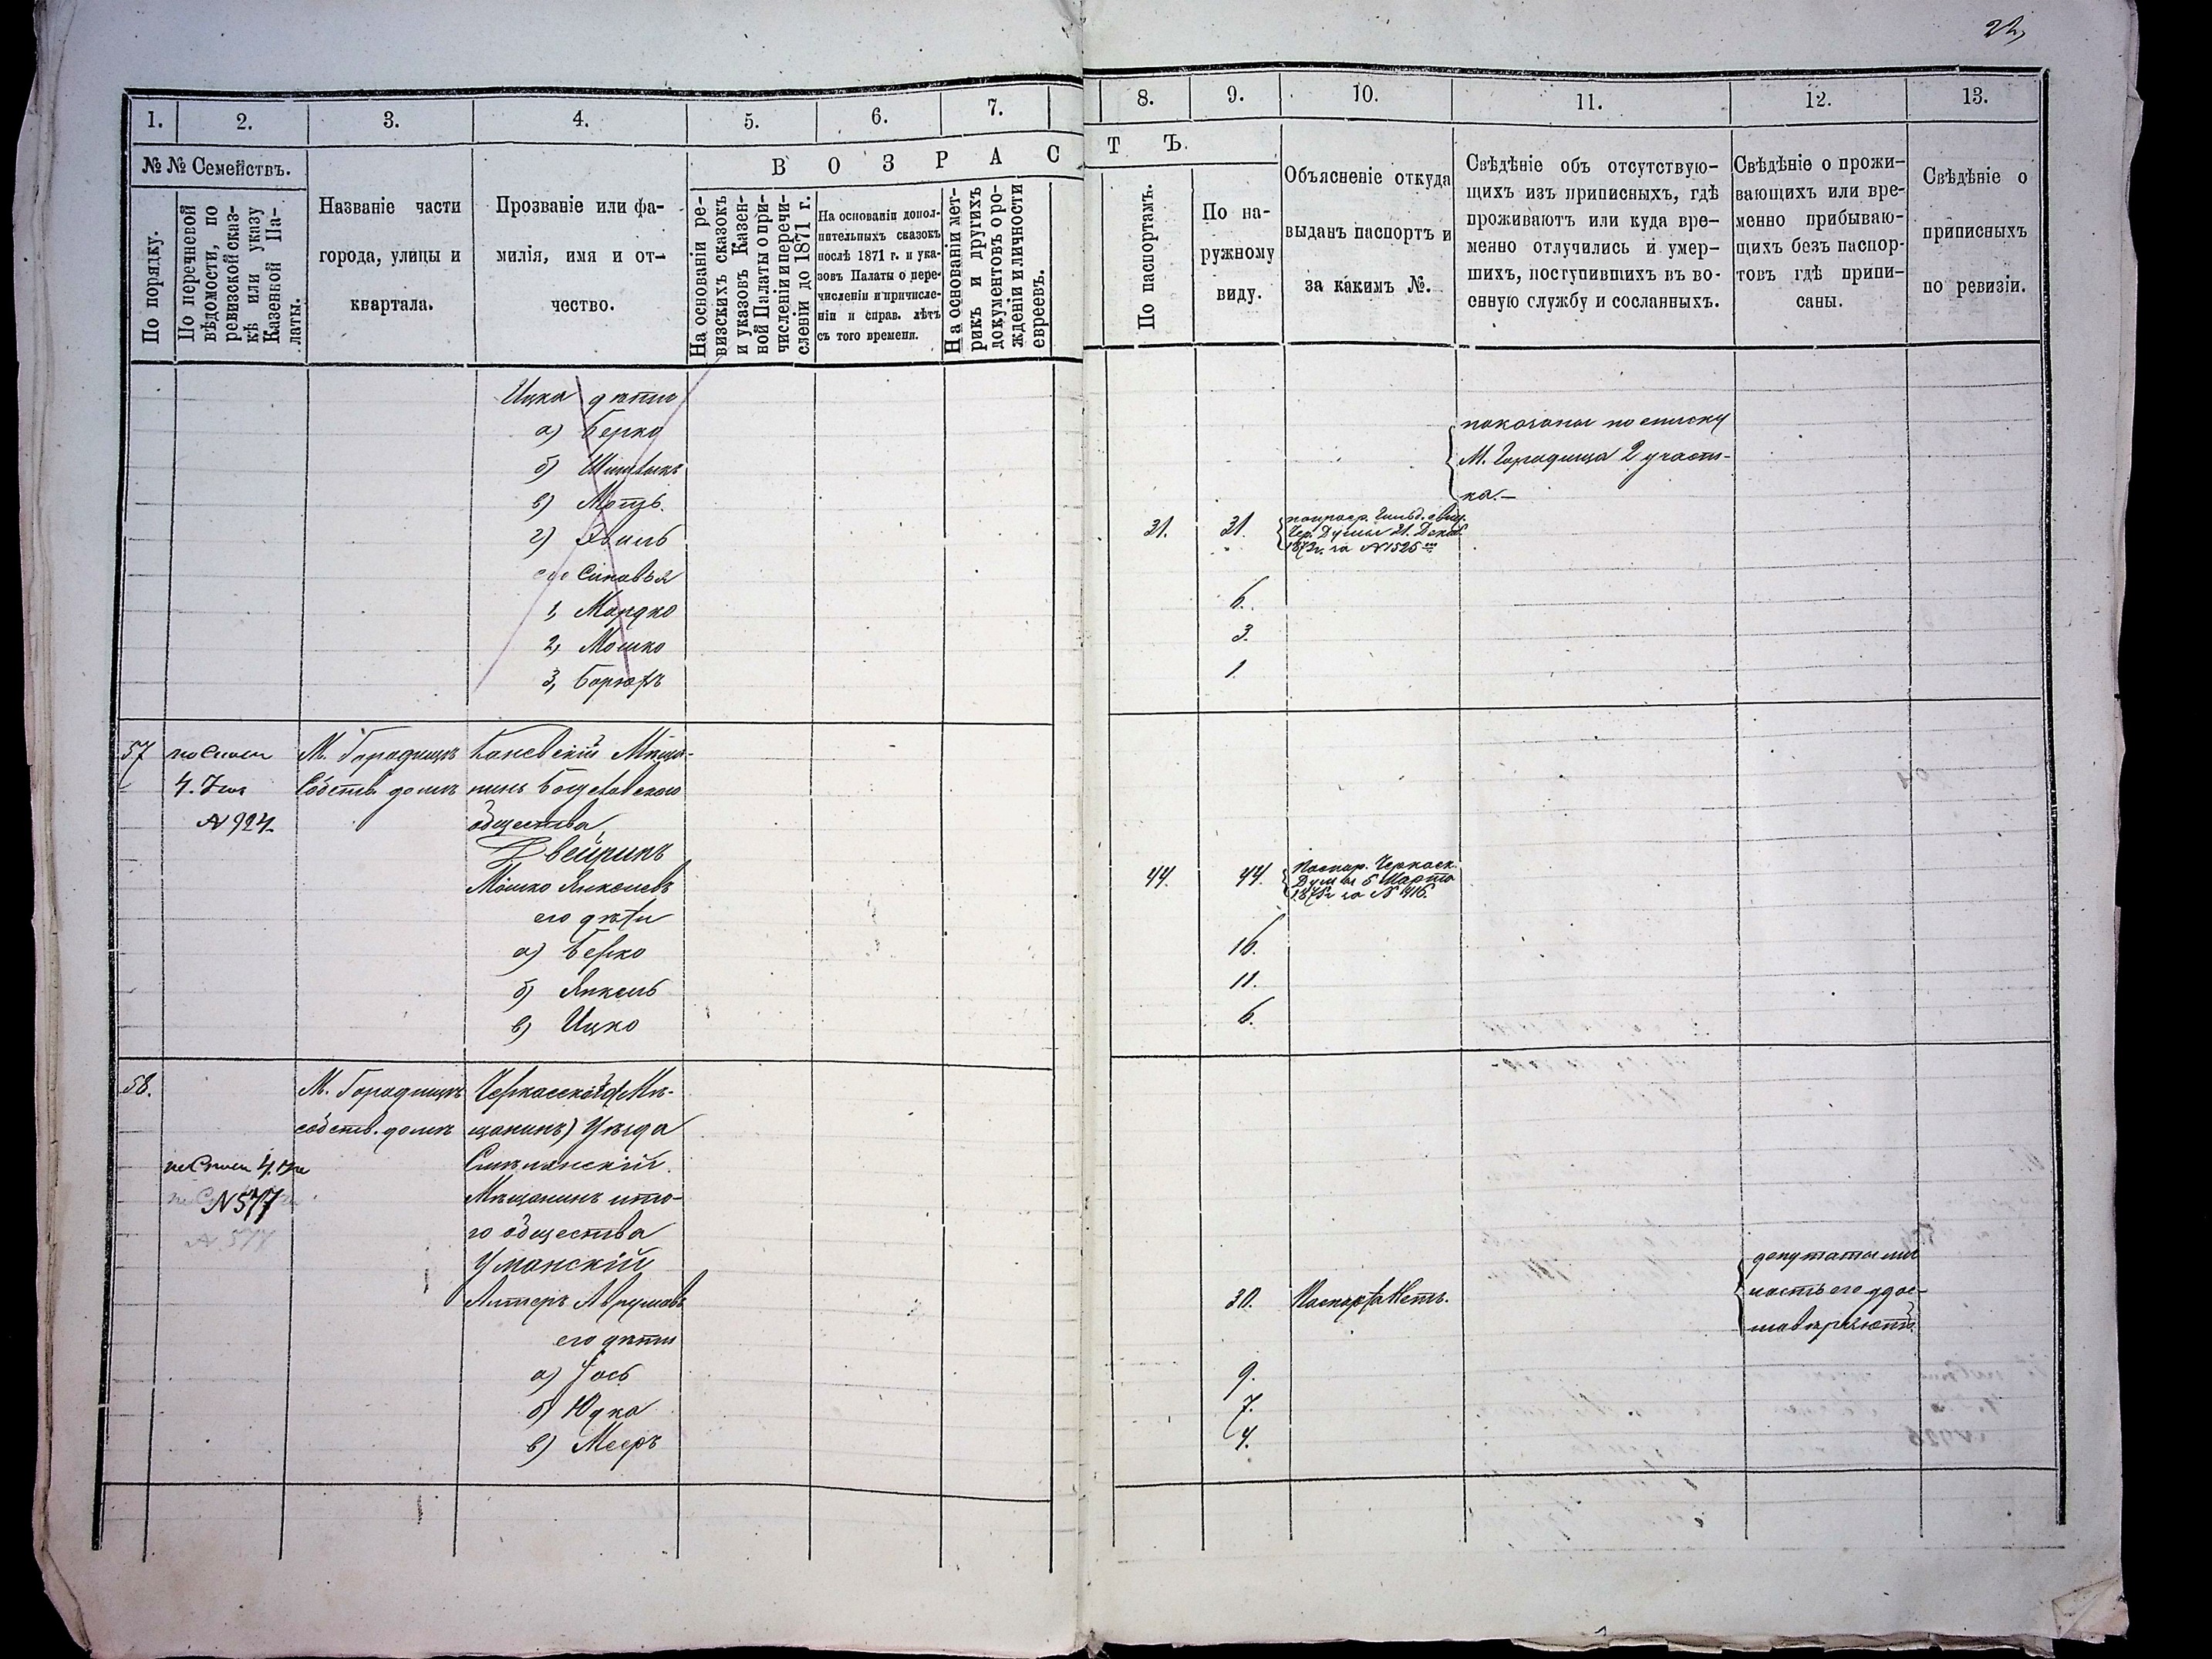 1.
2.
3.
4.
5.
6.
7.
8.
9.
10.
11.
12.
13.
№№ Семействъ.
По порядку.
По перечневой
вѣдомости, по
ревизской сказ-
кѣ или указу
Казенной Па-
латы.
Названіе части
города, улицы и
квартала.
Прозваніе или фа-
милія, имя и от-
чество.
ВОЗРАС
ТЪ.
На основаніи ре-
визскихъ сказокъ
и указовъ Казен-
ной Палаты о при-
численіи и перечи-
сленіи до 1871 г.
На основаніи допол-
нительныхъ сказокъ
послѣ 1871 г. и ука-
зовъ Палаты о пере-
численіи и причисле-
ніи и справ. лѣтъ
съ того времени.
На основаніи мет-
рикъ и другихъ
документовъ о ро-
жденіи и личности
евреевъ.
По паспортамъ.
По на-
ружному
виду.
Объясненіе откуда
выданъ паспортъ и
за какимъ №.
Свѣдѣніе объ отсутствую-
щихъ изъ приписныхъ, гдѣ
проживаютъ или куда вре-
менно отлучились и умер-
шихъ, поступившихъ въ во-
енную службу и сосланныхъ.
Свѣдѣніе о прожи-
вающихъ или вре-
менно прибываю-
щихъ безъ паспор-
товъ гдѣ припи-
саны.
Свѣдѣніе о
приписныхъ
по ревизіи.
Ицка дѣти
а) Берко
б)
в)
г)
его синовья
1, Мордко
2, Мошко
3, Борухъ
показаны по списку
М. Городища 2 участ-
ка.—
31. 31.
Думы 21. Декаб.
1872г. за №1525
6.
3.
1.
57
4.
№924.
М. Городищѣ
Собств. домѣ
Каневскій Мѣща-
нинъ Богуславского
общества
Двейринъ
Мошко Янкелевъ
его дѣти
а) Берко
б) Янкель
в) Ицко
44. 44.
Паспор. Черкаск.
Думы 5 Марта
за № 416.
16.
11.
6.
58.
№577
М. Городищѣ
собств. домѣ
Мѣ-
щанинъ) Уѣзда
Смѣлянскій
Мѣщанинъ
го общества
Уманскій
Лейзеръ Аврумовъ
его дѣти
а) Іось
б) Юдка
в) Мееръ
30.
Паспорта Нетъ.
депутаты лич
ность его удос-
9.
7.
4.